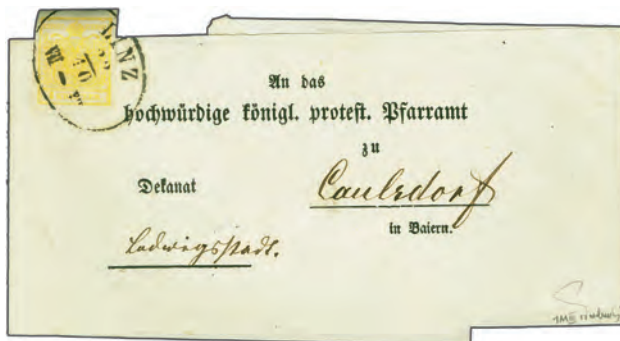 LINZ
An das
hochwürdige königl. protest. Pfarramt
zu
Dekanat
Caulsdorf
in Baiern.
Ludwigsstadt.